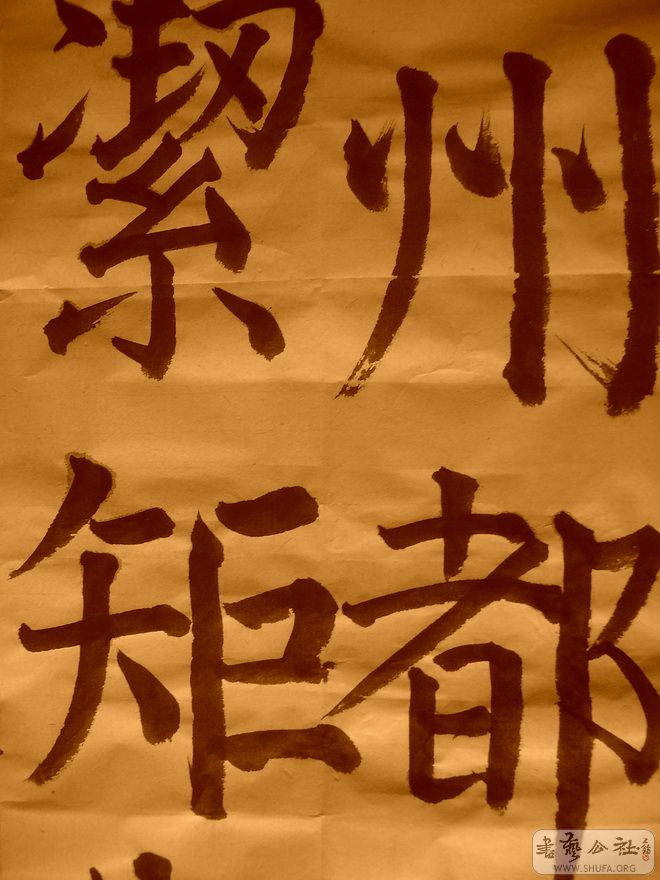 州都
潔矩
書藝公社
WWW.SHUFA.ORG